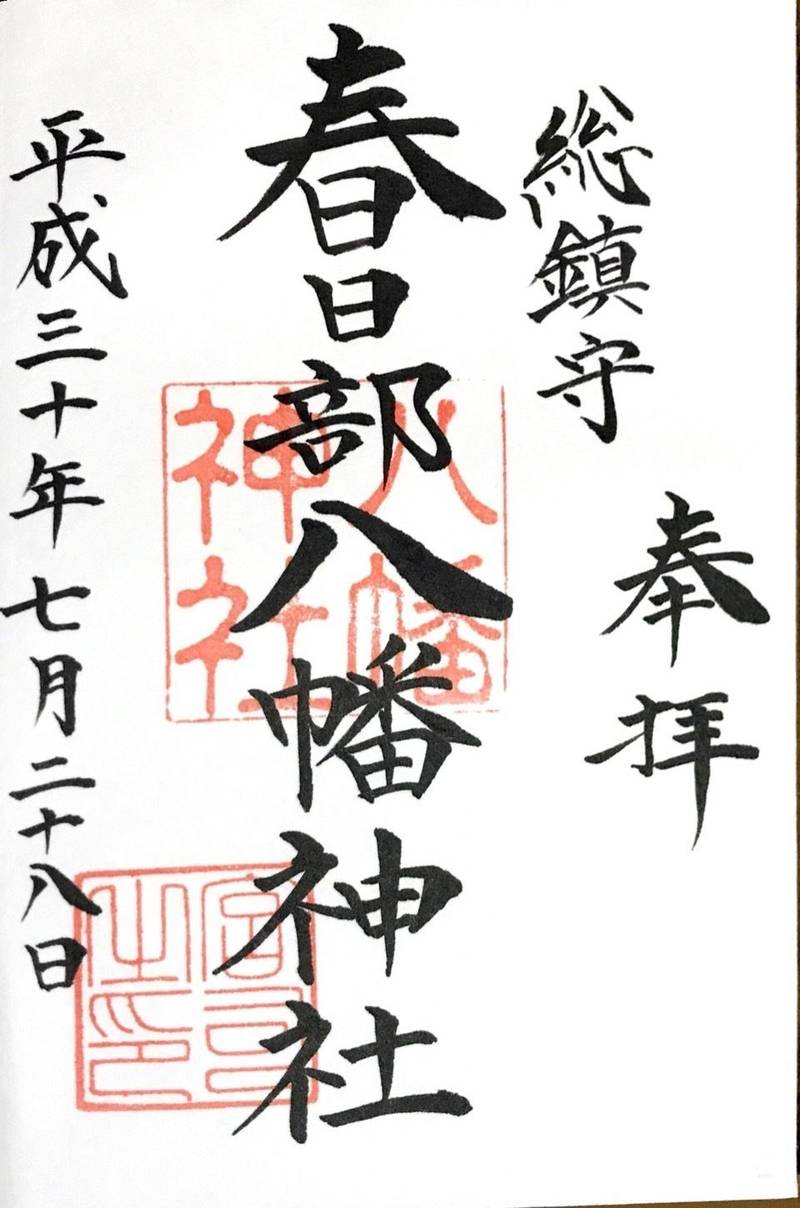 奉拝
総鎮守
春日部八幡神社
平成三十年七月二十八日
八幡
神社
宮司
之印